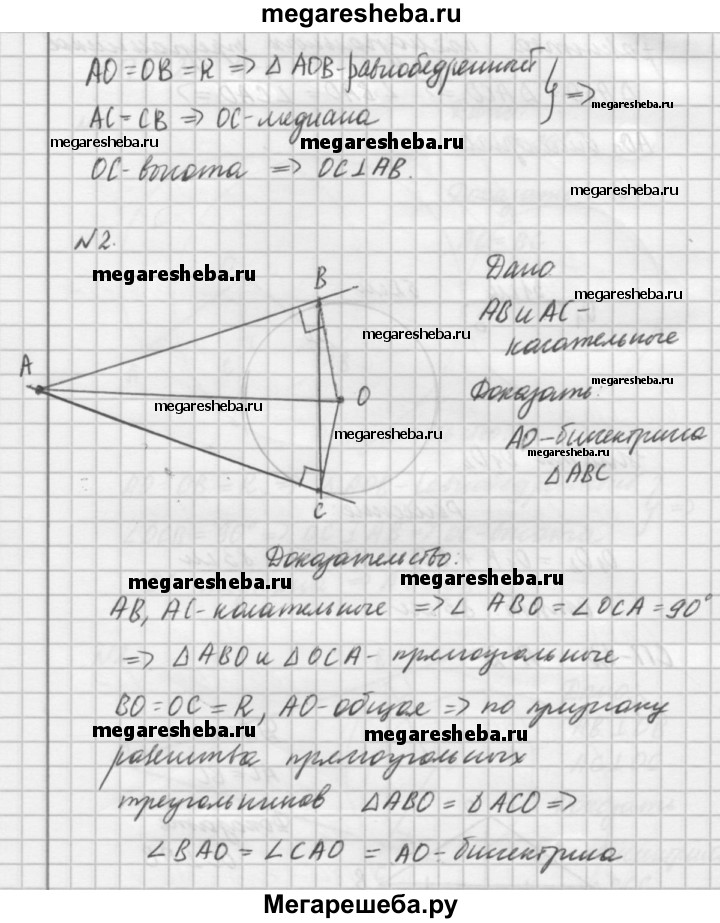 megaresheba.ru
AO = OB = R => Δ AOB - равнобедренный } =>
megaresheba.ru
AC = CB => OC - медиана
megaresheba.ru megaresheba.ru
OC - высота => OC ⊥ AB.
megaresheba.ru
N 2.
megaresheba.ru
B
Дано
megaresheba.ru
AB и AC -
megaresheba.ru
касательные
A
megaresheba.ru
Доказать:
megaresheba.ru
O
megaresheba.ru
AO - биссектриса
megaresheba.ru
Δ ABC
C
Доказательство:
megaresheba.ru megaresheba.ru
AB, AC - касательные => ∠ ABO = ∠OCA = 90°
=> Δ ABO и Δ OCA - прямоугольные
BO = OC = R, AO - общая => по признаку
megaresheba.ru megaresheba.ru
равенства прямоугольных
треугольников ΔABO = ΔACO =>
∠BAO = ∠CAO = AO - биссектриса
Мегарешеба.ру